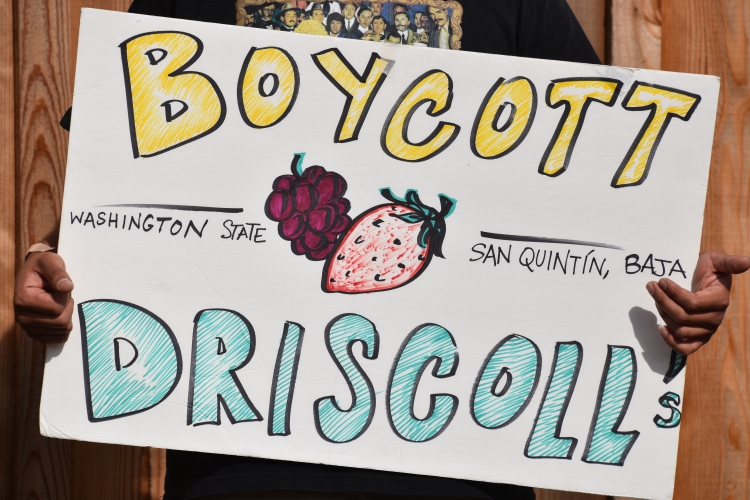 BOYCOTT
WASHINGTON STATE
SAN QUINTÍN, BAJA
DRISCOLL's